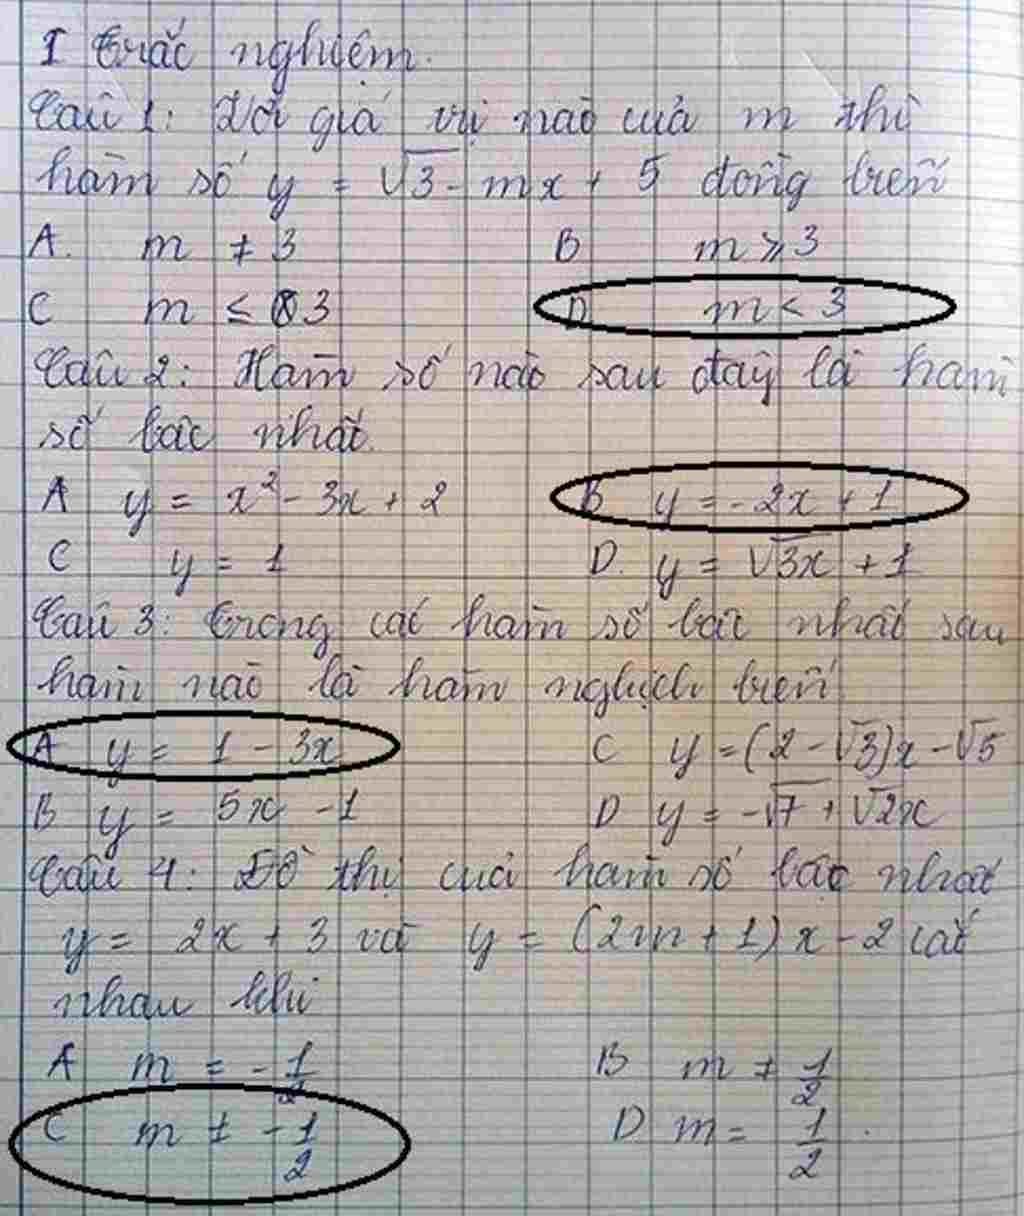 I Trắc nghiệm.
Câu 1: Với giá trị nào của m thì
hàm số y = √3 - mx + 5 đồng biến
A. m ≠ 3 B m ≥ 3
C m ≤ 3 D. m < 3
Câu 2: Hàm số nào sau đây là hàm
số bậc nhất.
A y = x² - 3x + 2 B y = -2x + 1
C y = 1 D. y = √3x + 1
Câu 3: Trong các hàm số bậc nhất sau
hàm nào là hàm nghịch biến
A y = 1 - 3x C y = (2 - √3)x - √5
B y = 5x - 1 D y = -√7 + √2x
Câu 4: Đồ thị của hàm số bậc nhất
y = 2x + 3 và y = (2m + 1)x - 2 cắt
nhau khi
A m = -1/2 B m ≠ 1/2
C m ≠ -1/2 D m = 1/2.